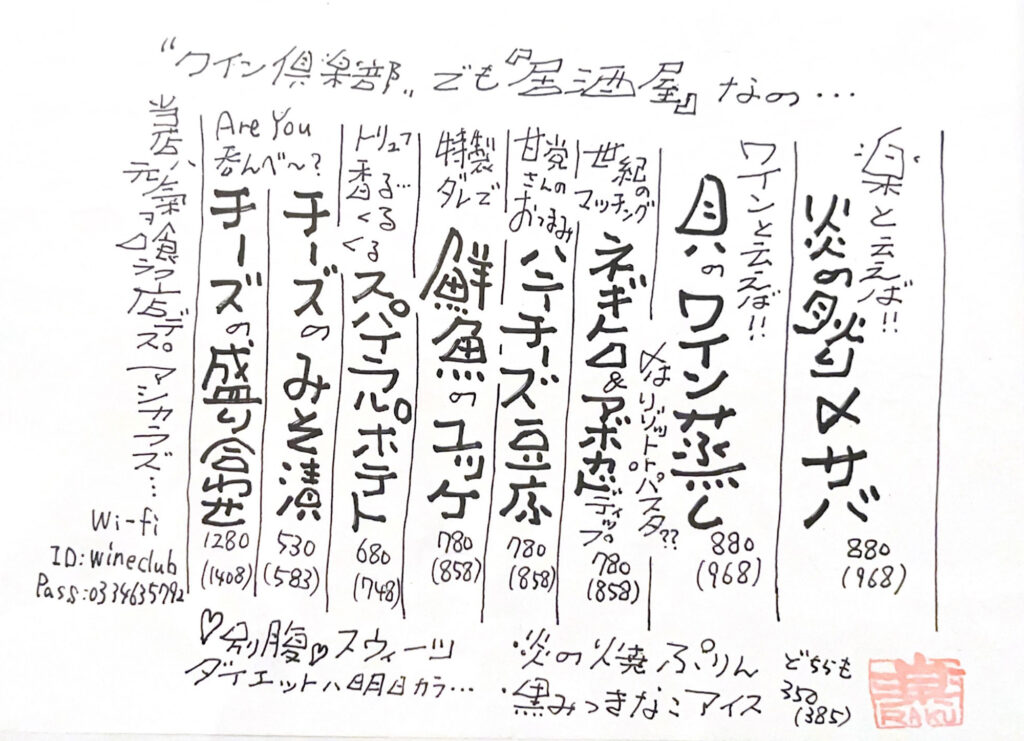 “ワイン倶楽部„でも『居酒屋』なの…
楽と云えば!!
炎の炙り〆サバ
880
(968)
ワインと云えば!!
貝のワイン蒸し
880
(968)
〆はリゾットorパスタ??
世紀の
マッチング
ネギトロ&アボカドディップ。
780
(858)
甘党
さんの
おつまみ
ハニーチーズ豆腐
780
(858)
特製
ダレで
鮮魚のユッケ
780
(858)
トリュフ
香る…
くる
くる
スパイラルポテト
680
(748)
Are You
呑んべ〜?
チーズのみそ漬
530
(583)
チーズの盛り合わせ
1280
(1408)
当店ハ
元気ヲ喰ラフ店デス。マシカラズ…
Wi-fi
ID:wineclub
Pass:0334635792
♡別腹♡スウィーツ
ダイエットハ明日カラ…
・炎の焼ぷりん
・黒みつきなこアイス
どちらも
350
(385)
楽
RAKU